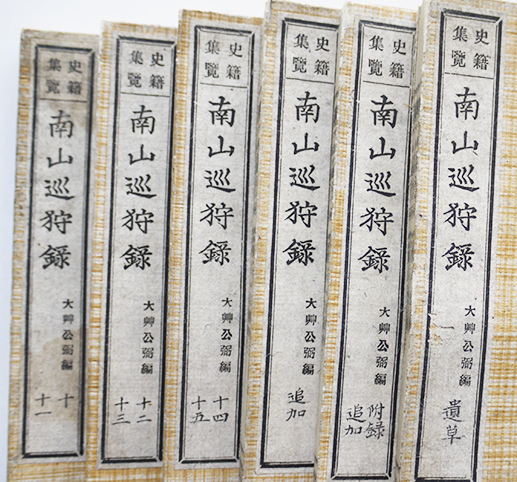 史籍
集覽
南山巡狩錄
大艸公弼編
十
十一
史籍
集覽
南山巡狩錄
大艸公弼編
十二
十三
史籍
集覽
南山巡狩錄
大艸公弼編
十四
十五
史籍
集覽
南山巡狩錄
大艸公弼編
追加
史籍
集覽
南山巡狩錄
大艸公弼編
附錄
追加
史籍
集覽
南山巡狩錄
大艸公弼編
遺草